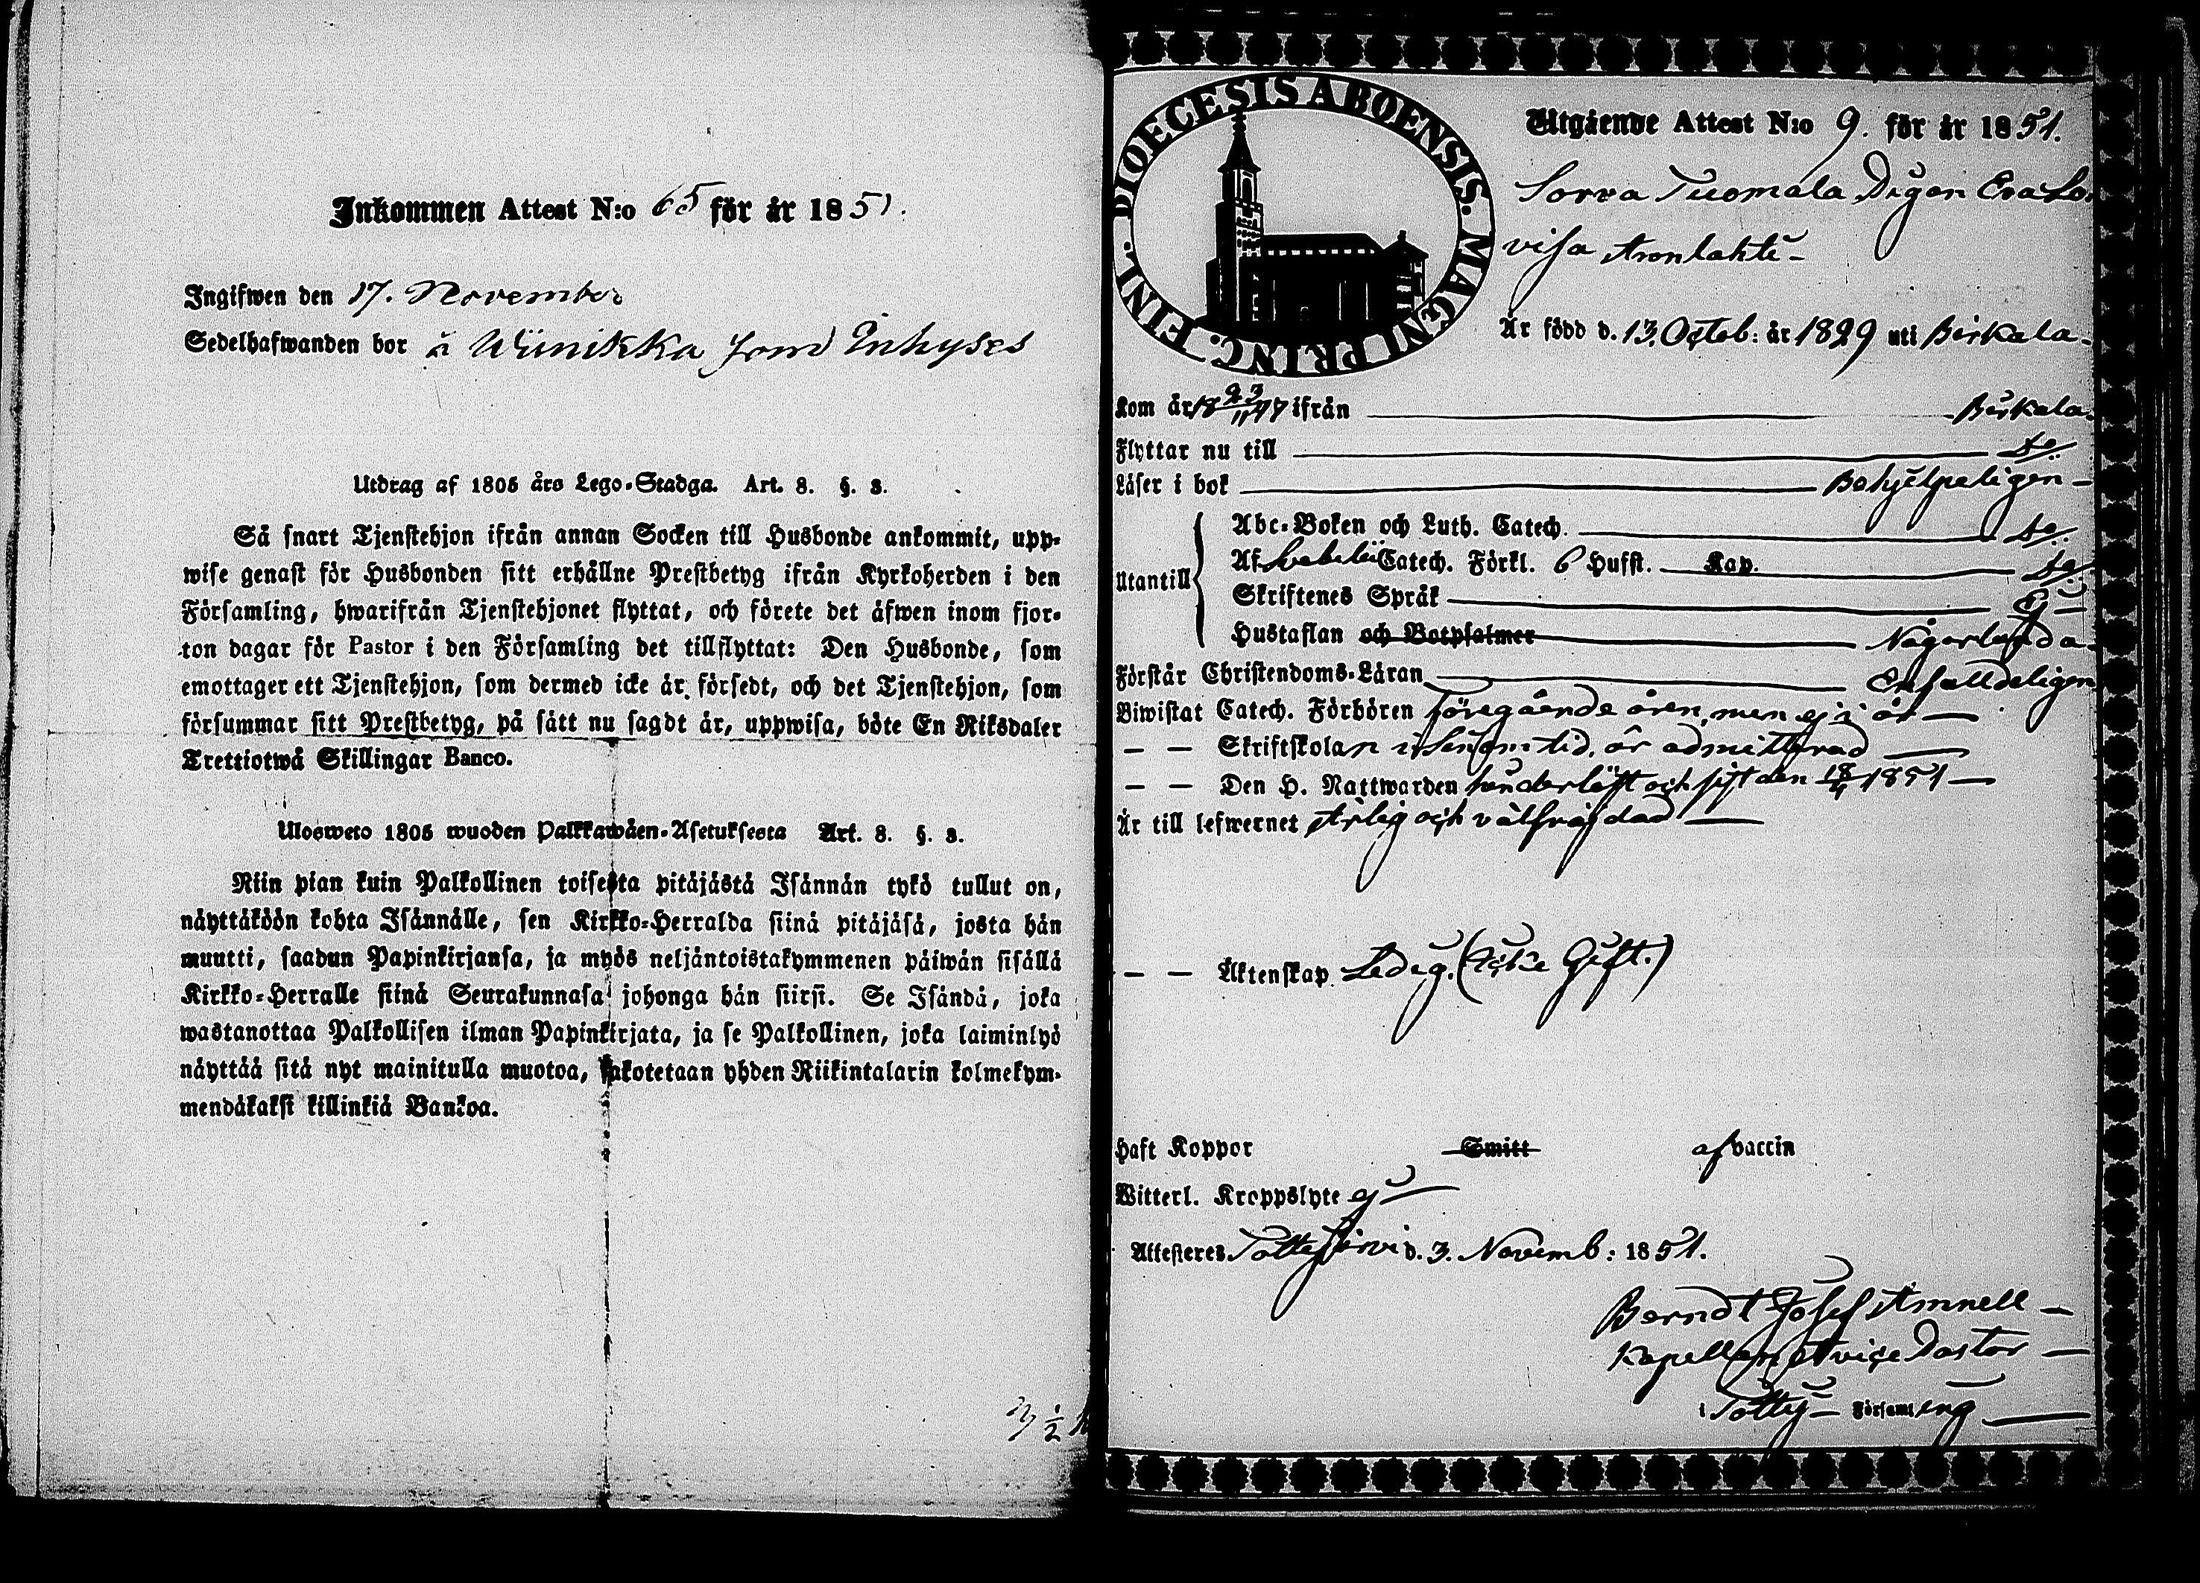 Inkommen Attest N:o 65 för år 1851.
Ingifwen den 17. November
Sedelhafwanden bor å Wiinikka som Inhyses
Utdrag af 1805 års Lego-Stadga. Art. 8. §. 3.
Så snart Tjenstehjon ifrån annan Socken till Husbonde ankommit, upp-
wise genast för Husbonden sitt erhållne Prestbetyg ifrån Kyrkoherden i den
Församling, hwarifrån Tjenstehjonet flyttat, och förete det äfwen inom fjor-
ton dagar för Pastor i den Församling det tillflyttat: Den Husbonde, som
emottager ett Tjenstehjon, som dermed icke är försedt, och det Tjenstehjon, som
försummar sitt Prestbetyg, på sätt nu sagdt är, uppwisa, böte En Riksdaler
Trettiotwå Skillingar Banco.
Ulosweto 1805 wuoden Palkkawäen-Asetuksesta Art. 8. §. 3.
Niin pian kuin Palkollinen toisesta pitäjästä Isännän tykö tullut on,
näyttäköön kohta Isännälle, sen Kirkko-Herralda siinä pitäjäsä, josta hän
muutti, saadun Papinkirjansa, ja myös neljäntoistakymmenen päiwän sisällä
Kirkko-Herralle siinä Seurakunnasa johonga hän siirsi. Se Isändä, joka
wastanottaa Palkollisen ilman Papinkirjata, ja se Palkollinen, joka laiminlyö
näyttää sitä nyt mainitulla muotoa, sakotetaan yhden Riikintalarin kolmekym-
mendäkaksi killinkiä Bankoa.
DIOECESIS ABOENSIS. MAGNI PRINC. FINL.
Utgående Attest N:o 9. för år 1851.
Sorva Tuomala Pigan Eva Lo-
visa Aronlahti
Är född d. 13. Octob: år 1829 uti Birkala
Kom år 18 23/11 47 ifrån Birkala
Flyttar nu till do
Läser i bok Behjelpeligen
Utantill
Abc-Boken och Luth. Catech. do
Af Svebelii Catech. Förkl. 6 Hufst. Kap. do
Skriftenes Språk Ej
Hustaflan och Botpsalmer Någorlunda
Förstår Christendoms-Läran Enfalldeligen
Biwistat Catech. Förhören föregående åren, men ej i år
— — Skriftskolan i sinom tid, är admitterad
— — Den H. Nattwarden och sist den 1851
Är till lefwernet Ärlig och välfräjdad
— — Äktenskap Ledig. (Icke Gift.)
Haft Koppor Smitt af vaccin
Witterl. Kroppslyte ej
Attesteres Tottijärvi d. 3. Novemb: 1851.
Berndt Josef Amnell
Kapellan, vice Pastor
i Totti- Församling